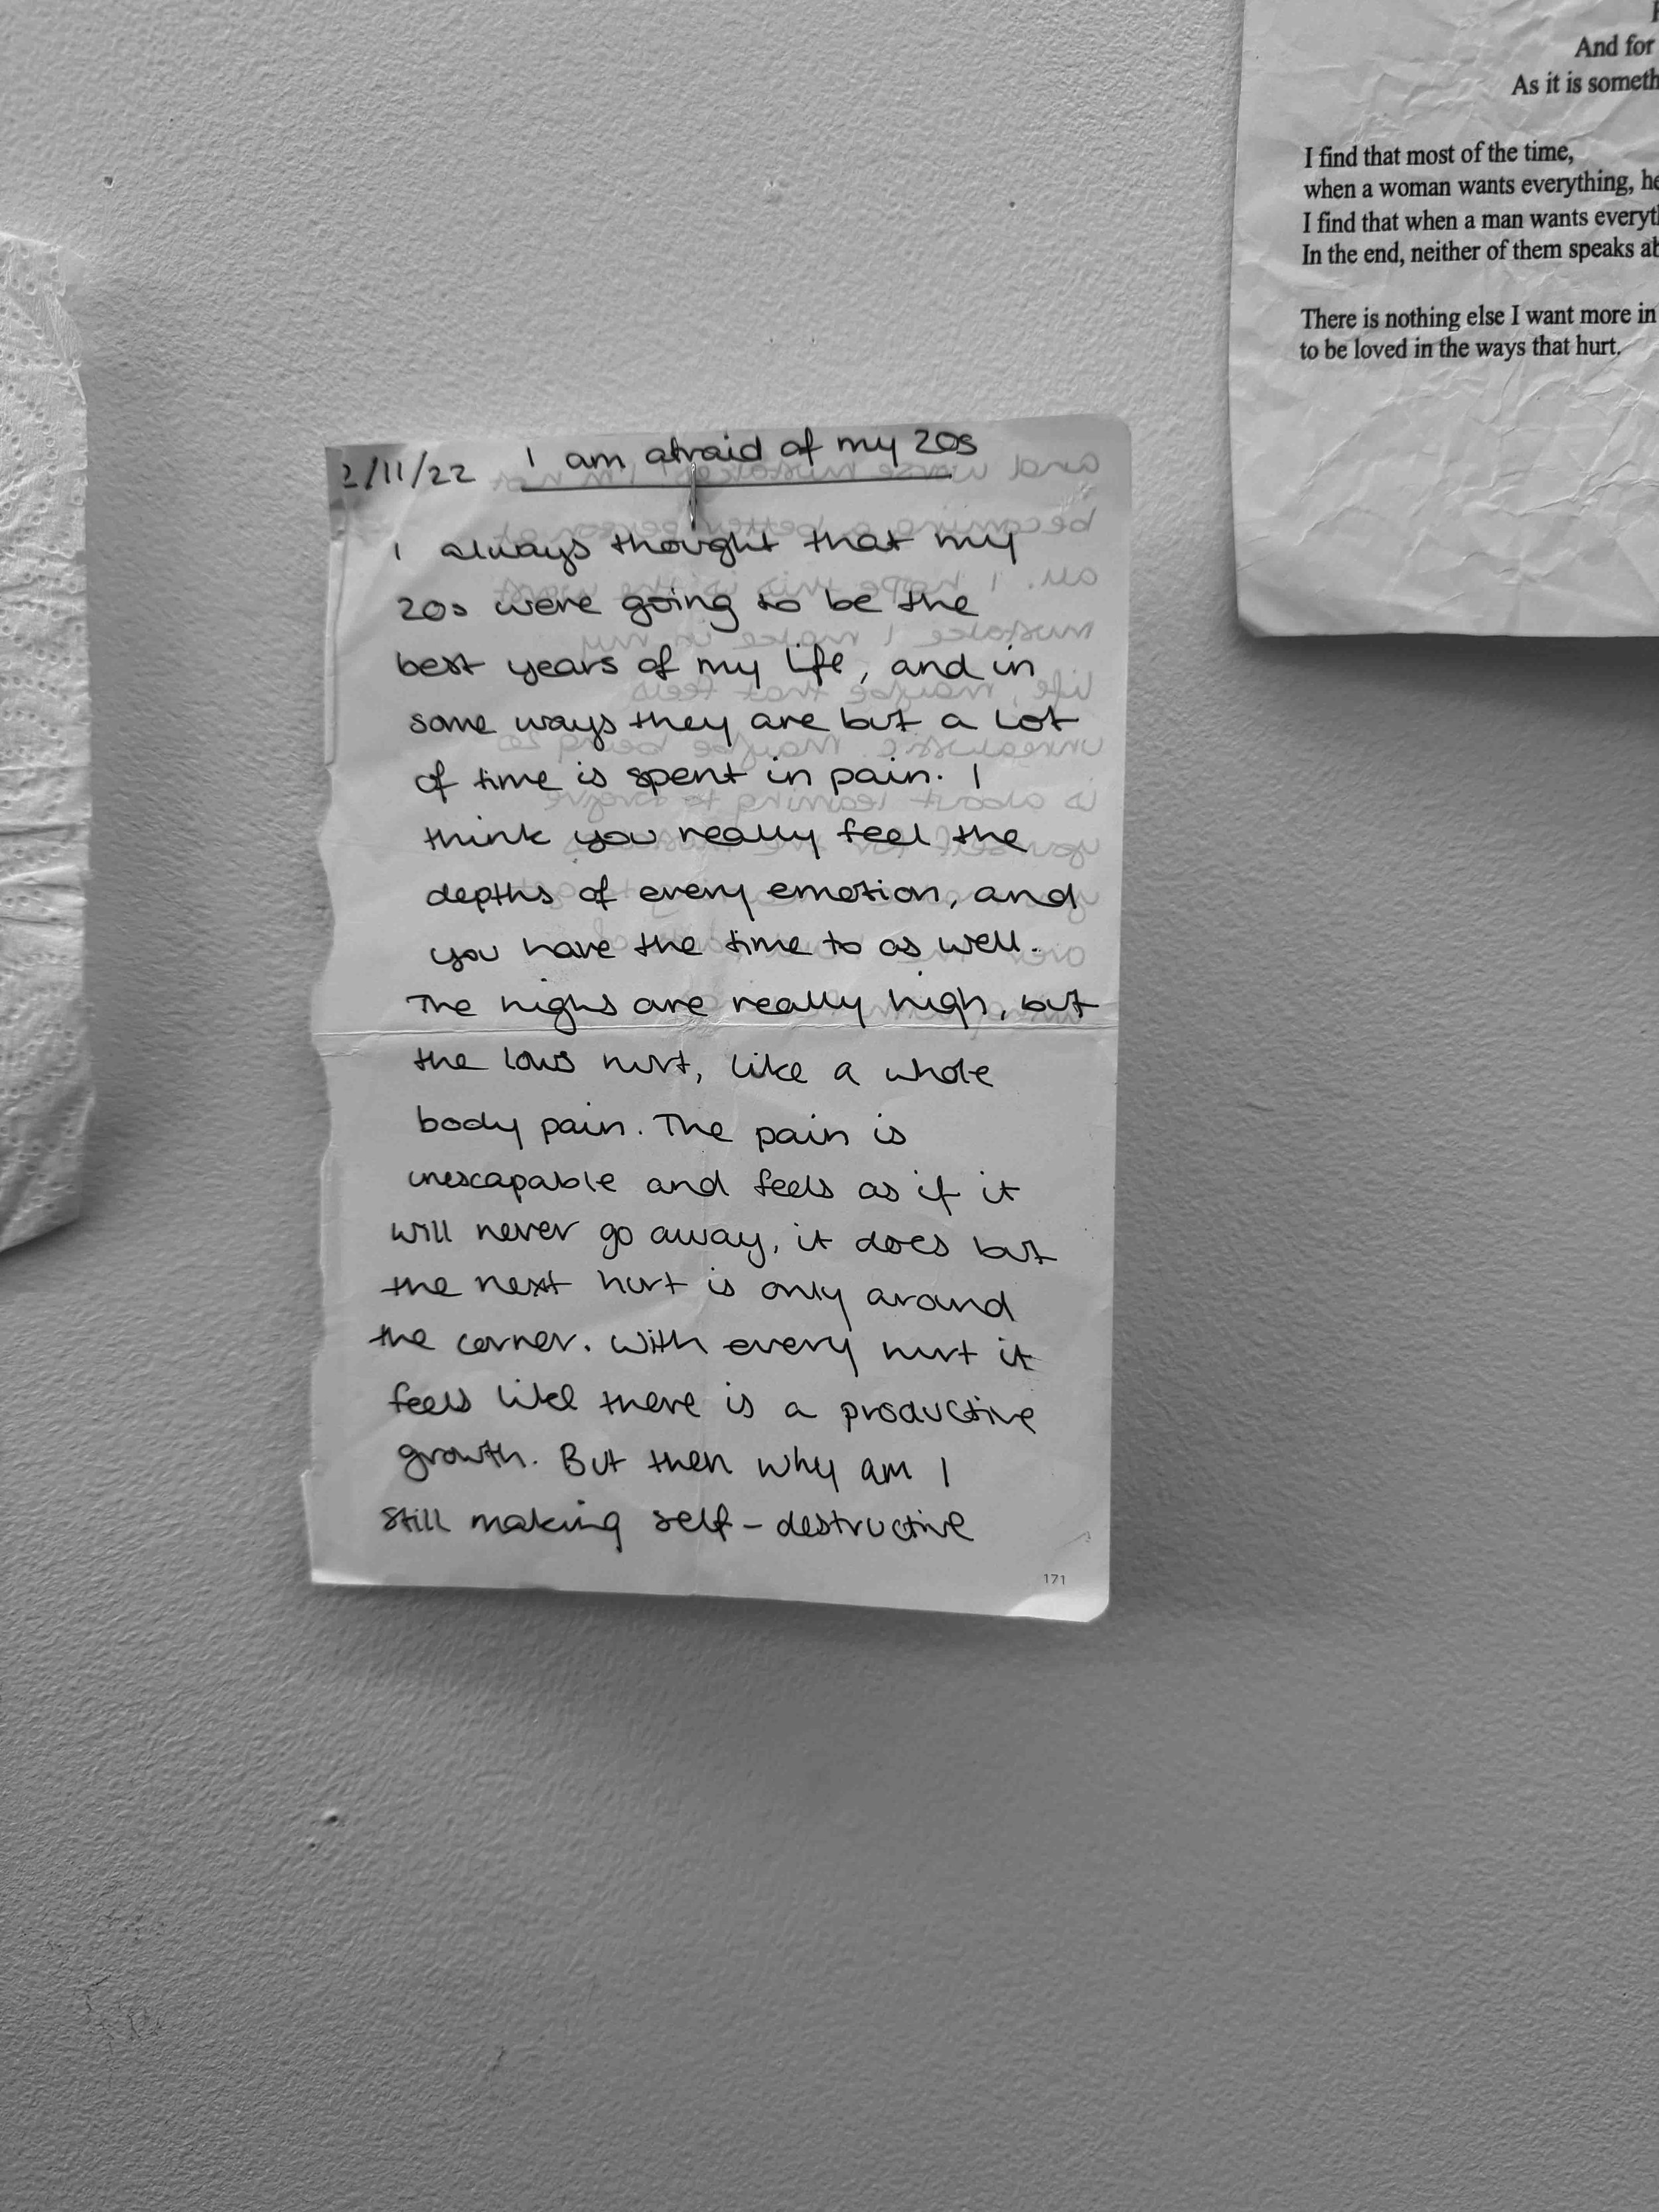 2/11/22 I am afraid of my 20s
I always thought that my
20s were going to be the
best years of my life, and in
some ways they are but a lot
of time is spent in pain. I
think you really feel the
depths of every emotion, and
you have the time to as well.
The highs are really high, but
the lows hurt, like a whole
body pain. The pain is
inescapable and feels as if it
will never go away, it does but
the next hurt is only around
the corner. With every hurt it
feels like there is a productive
growth. But then why am I
still making self-destructive
171
And for
As it is someth
I find that most of the time,
when a woman wants everything, he
I find that when a man wants everyt
In the end, neither of them speaks ab
There is nothing else I want more in
to be loved in the ways that hurt.